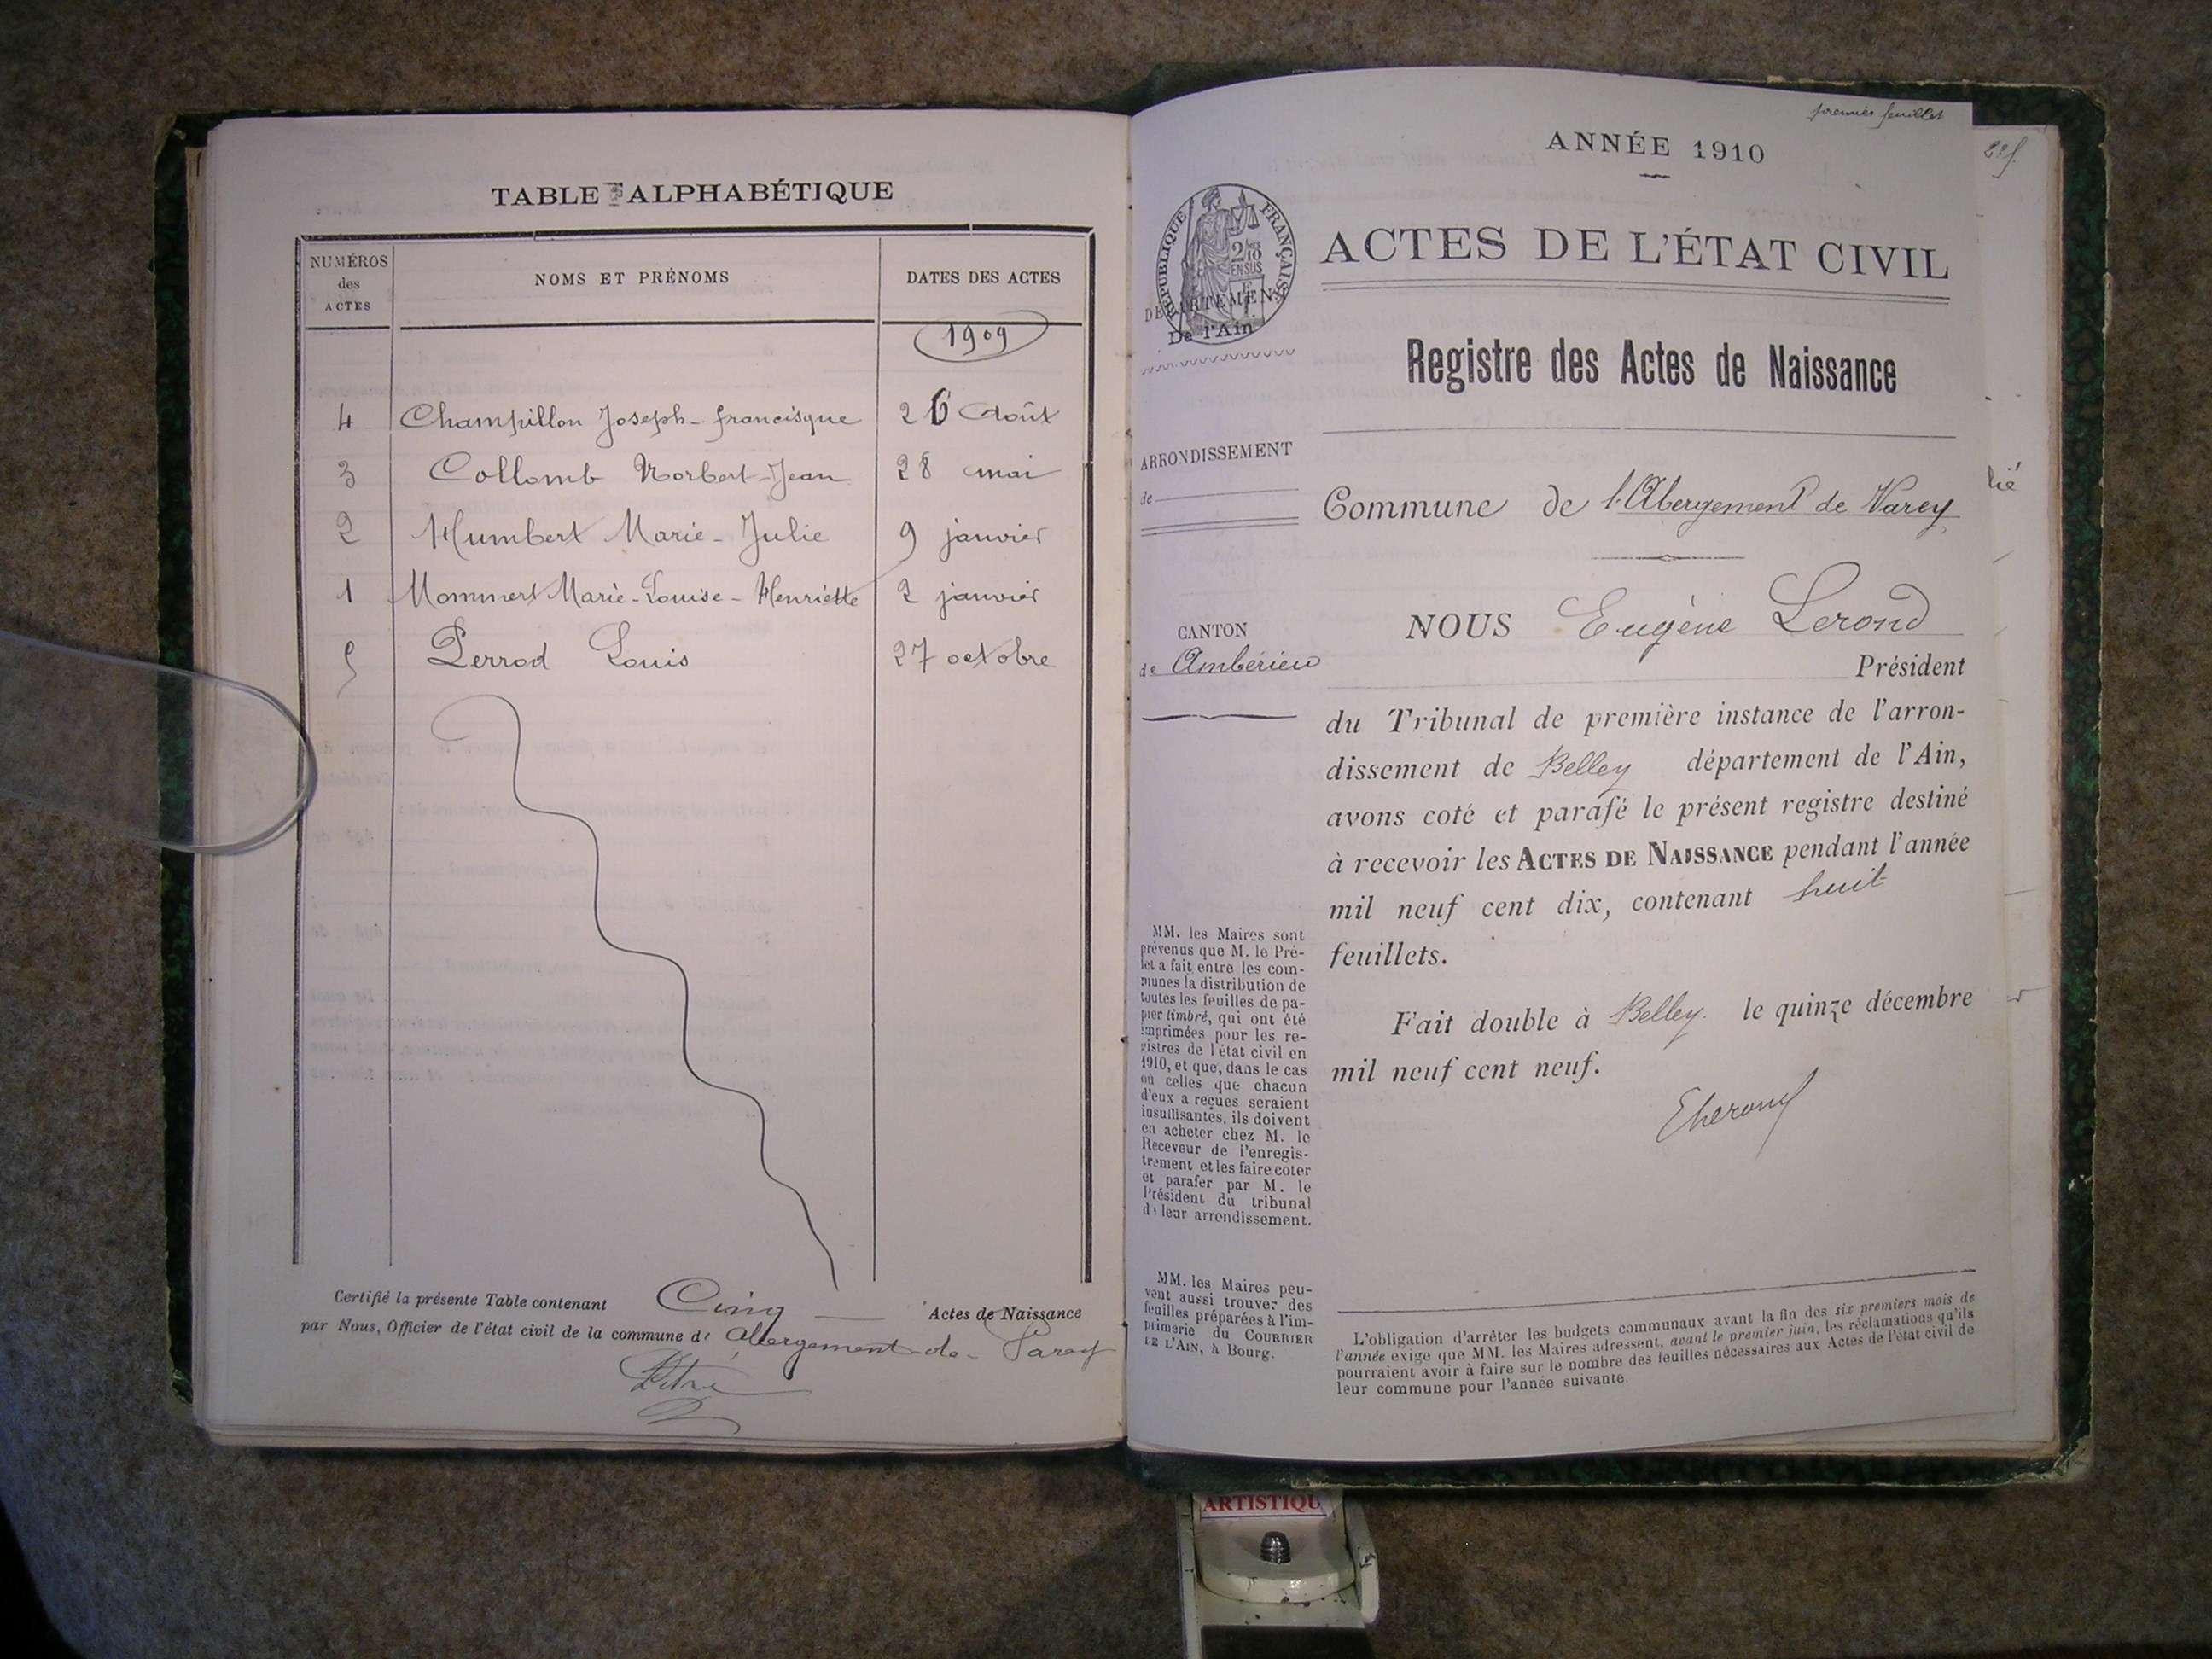 TABLE ALPHABÉTIQUE
NUMÉROS des ACTES NOMS ET PRÉNOMS DATES DES ACTES
1909
4 Champillon Joseph-francisque 26 Août
3 Collomb Norbert-Jean 28 mai
2 Humbert Marie-Julie 9 janvier
1 Mommert Marie-Louise-Henriette 2 janvier
5 Perrod Louis 27 octobre
Certifié la présente Table contenant Cinq Actes de Naissance
par Nous, Officier de l'état civil de la commune d' Abergement-de-Varey
premier feuillet
ANNÉE 1910
RÉPUBLIQUE FRANÇAISE
EN SUS
DÉPARTEMENT
De l'Ain
ACTES DE L'ÉTAT CIVIL
Registre des Actes de Naissance
ARRONDISSEMENT
de
Commune de l'Abergement de Varey
CANTON
de Ambérieu
NOUS Eugène Lerond
Président
du Tribunal de première instance de l'arron-
dissement de Belley département de l'Ain,
avons coté et parafé le présent registre destiné
à recevoir les ACTES DE NAISSANCE pendant l'année
mil neuf cent dix, contenant huit
feuillets.
Fait double à Belley. le quinze décembre
mil neuf cent neuf.
MM. les Maires sont
prévenus que M. le Pré-
fet a fait entre les com-
munes la distribution de
toutes les feuilles de pa-
pier timbré, qui ont été
imprimées pour les re-
gistres de l'état civil en
1910, et que, dans le cas
où celles que chacun
d'eux a reçues seraient
insuffisantes, ils doivent
en acheter chez M. le
Receveur de l'enregis-
trement et les faire coter
et parafer par M. le
Président du tribunal
de leur arrondissement.
MM. les Maires peu-
vent aussi trouver des
feuilles préparées à l'im-
primerie du COURRIER
DE L'AIN, à Bourg.
L'obligation d'arrêter les budgets communaux avant la fin des six premiers mois de
l'année exige que MM. les Maires adressent, avant le premier juin, les réclamations qu'ils
pourraient avoir à faire sur le nombre des feuilles nécessaires aux Actes de l'état civil de
leur commune pour l'année suivante
lié
ARTISTIQU